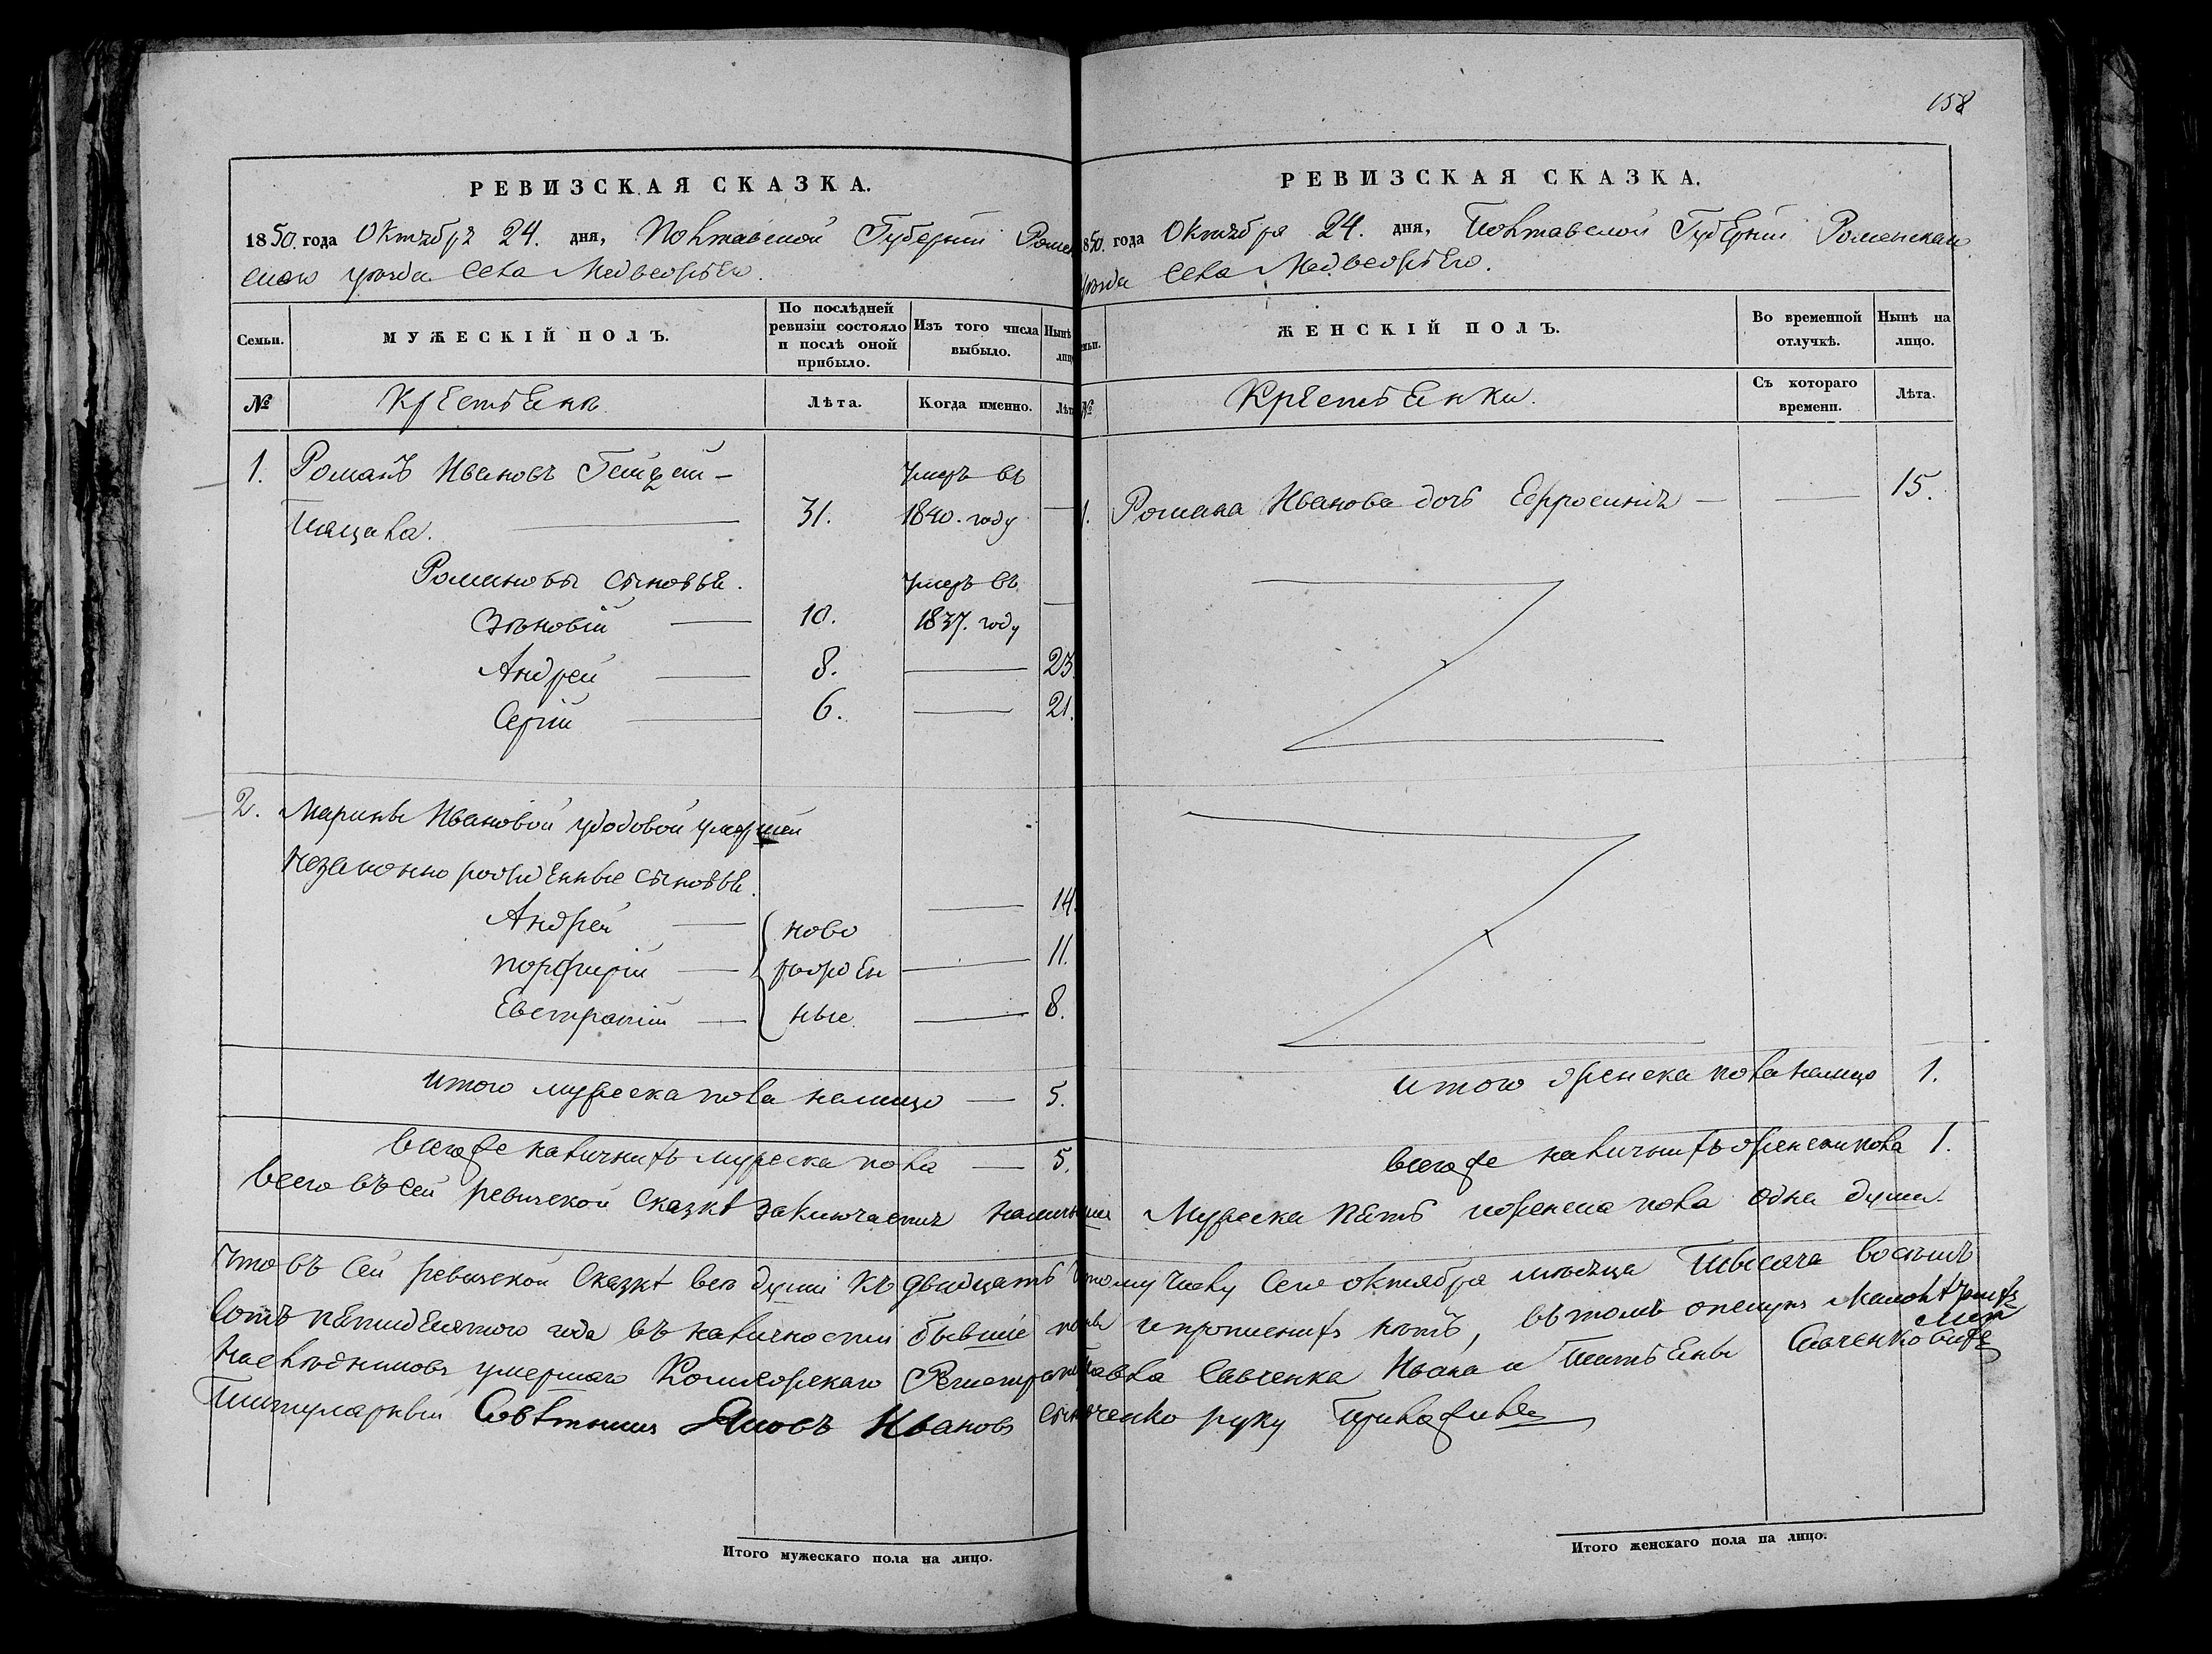 158
РЕВИЗСКАЯ СКАЗКА.
1850. года Октября 24. дня, Полтавской Губерніи Ромен
скаго уѣзда Села Медвежьяго.
Семьи.
МУЖЕСКІЙ ПОЛЪ.
По послѣдней ревизіи состояло и послѣ оной прибыло.
Изъ того числа выбыло.
Нынѣ
лиц
№
Крестьяне
Лѣта.
Когда именно.
Лѣт
1. Романъ Ивановъ
умеръ въ
31. 1840. году
Романовы сыновья.
умеръ въ
Зѣновій 10. 1837. году
Андрей 8. 23.
Сергій 6. 21.
2. Марины Ивановой Удодовой умершей
незаконно рожденные сыновья.
Андрей ново 14.
Порфирій рожден 11.
Евстратій ные 8.
Итого мужеска пола налицо 5.
Всегоже наличныхъ мужеска пола 5.
РЕВИЗСКАЯ СКАЗКА.
1850. года Октября 24. дня, Полтавской Губерніи Роменскаго
уѣзда Села Медвежьяго.
емьи.
ЖЕНСКІЙ ПОЛЪ.
Во временной отлучкѣ.
Нынѣ на лицо.
№
Крестьянки.
Съ котораго времени.
Лѣта.
1. Романа Иванова дочь Ефросинія 15.
Итого женска пола налицо 1.
Всегоже наличныхъ женска пола 1.
Всего въ сей ревизской сказкѣ заключается наличныхъ Мужеска пять и женска пола одна душа.
Что въ сей ревизской сказкѣ все души къ двадцать тому числу сего октября мѣсяца тысяча восемь
сотъ пятидесятого года въ наличности бывшіе и прописныхъ нѣтъ, въ томъ опекунъ
Наслѣдниковъ умершаго Колежскаго Регистрат Савченка Ивана и Татьяны Савченковыхъ
Титулярный Совѣтникъ Яковъ Ивановъ ченко руку приложилъ
Итого мужескаго пола на лицо.
Итого женскаго пола на лицо.